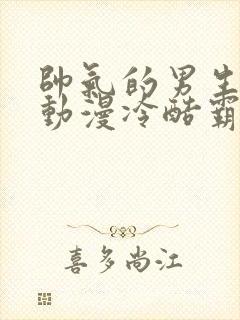 帥氣的男生
動漫冷酷霸
喜多尚江